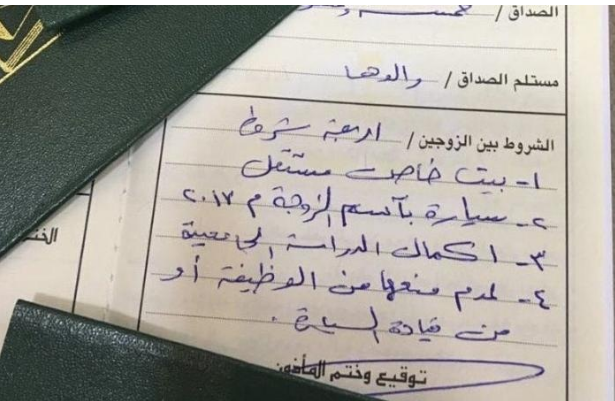 الصداق / خمسة
مستلم الصداق / والدها
الشروط بين الزوجين / اربعة شروط
١- بيت خاص مستقل
٢- سيارة بآسم الزوجة م ٢٠١٧
٣- اكمال الدراسة الجامعية
٤- لعدم منعها من الوظيفة أو
من قيادة السيارة .
توقيع وختم المأذون
الخت